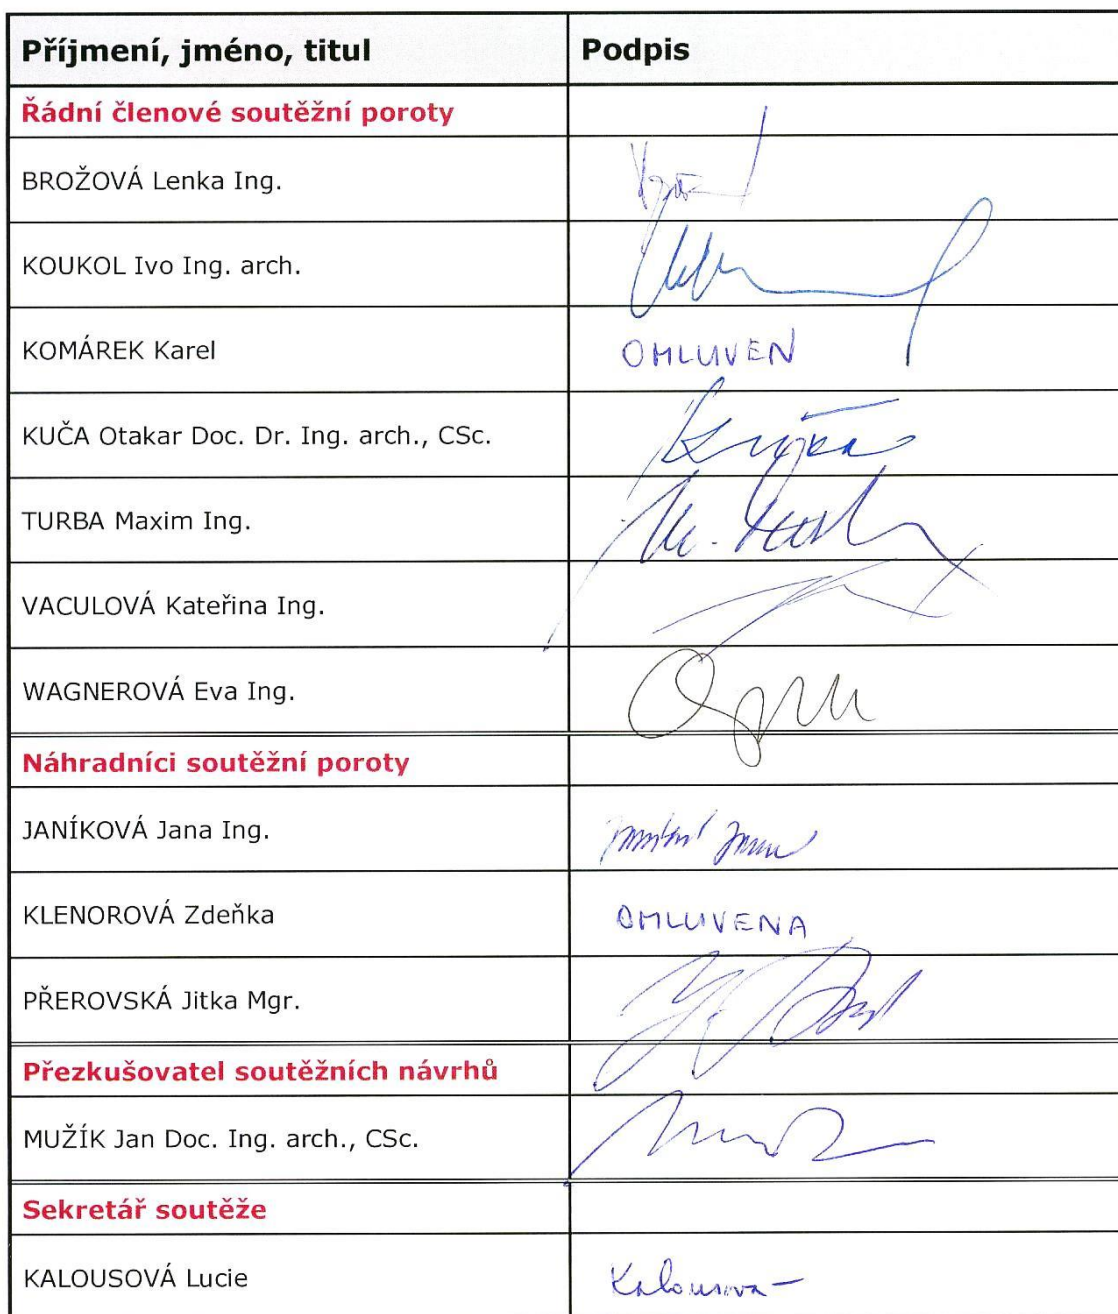 Příjmení, jméno, titul Podpis
Řádní členové soutěžní poroty
BROŽOVÁ Lenka Ing.
KOUKOL Ivo Ing. arch.
KOMÁREK Karel OMLUVEN
KUČA Otakar Doc. Dr. Ing. arch., CSc.
TURBA Maxim Ing.
VACULOVÁ Kateřina Ing.
WAGNEROVÁ Eva Ing.
Náhradníci soutěžní poroty
JANÍKOVÁ Jana Ing.
KLENOROVÁ Zdeňka OMLUVENA
PŘEROVSKÁ Jitka Mgr.
Přezkušovatel soutěžních návrhů
MUŽÍK Jan Doc. Ing. arch., CSc.
Sekretář soutěže
KALOUSOVÁ Lucie Kalousova